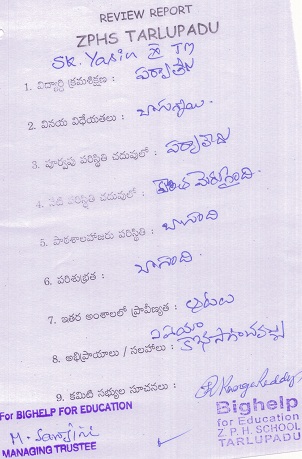 REVIEW REPORT
ZPHS TARLUPADU
SK. Yasin X TM
1. విద్యార్థి క్రమశిక్షణ : పర్వాలేదు
2. వినయ విధేయతలు : బాగున్నాయి.
3. పూర్వపు పరిస్థితి చదువులో : పర్వాలేదు
4. నేటి పరిస్థితి చదువులో : కొంత మెరుగైంది.
5. పాఠశాలహాజరు పరిస్థితి : బాగుంది
6. పరిశుభ్రత : బాగుంది.
7. ఇతర అంశాలలో ప్రావీణ్యత : ఆటలు
8. అభిప్రాయాలు / సలహాలు : కొనసాగించవచ్చు
9. కమిటి సభ్యుల సూచనలు :
For BIGHELP FOR EDUCATION
MANAGING TRUSTEE
Bighelp
for Education
Z. P. H. SCHOOL
TARLUPADU